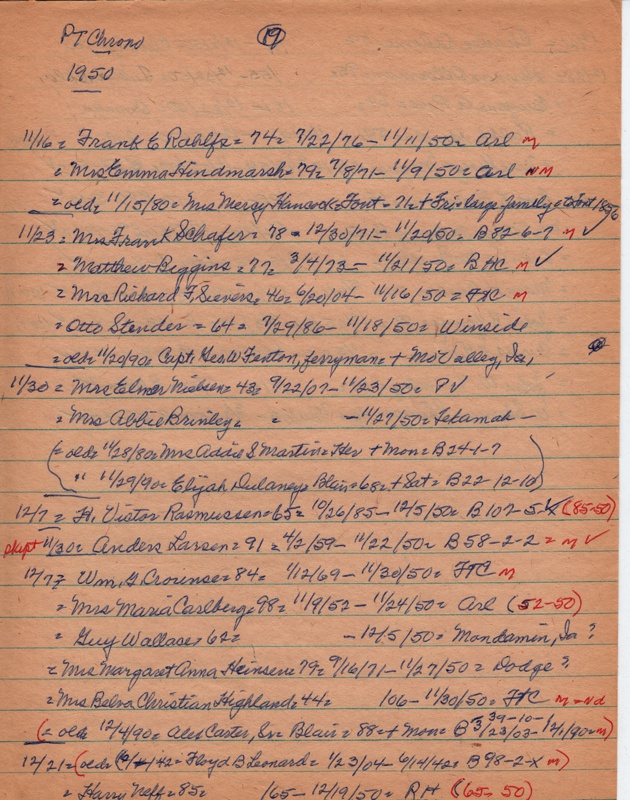 PT Chrono 19
1950
11/16 = Frank E Rahlfs = 74 = 7/22/76 - 11/11/50 = Arl m
= Mrs Emma Hindmarsh = 79 = 7/8/71 - 11/9/50 = Arl m
= old = 11/15/80 = Mrs Mercy Hancock = Font - 71 = + Fri = large family = to Font 1856
11/23 = Mrs Frank Schafer = 78 = 12/30/71 - 11/20/50 = B 82-6-7 m ✓
= Matthew Beggins = 77 = 3/4/73 - 11/21/50 = B HC m ✓
= Mrs Richard F. Seevers = 46 = 6/20/04 - 11/16/50 = FtC m
= Otto Stender = 64 = 7/29/86 - 11/18/50 = Winside
= old = 11/20/90 = Capt. Geo. W Fenton, ferryman = + Mo Valley, Ia,
11/30 = Mrs Elmer Nielsen = 43 = 9/22/07 - 11/23/50 = PV
= Mrs Abbie Brinley = = - 11/27/50 = Tekamah -
(= old = 11/28/80 = Mrs Addie S Martin = Her + Mon = B 241-7
" 11/29/90 = Elijah Dulaney = Blair = 68 = + Sat = B 22-12-10)
12/7 = H. Victor Rasmussen = 65 = 10/26/85 - 12/5/50 = B 107-5-X (85-50)
skipt 11/30 = Anders Larsen = 91 = 4/2/59 - 11/22/50 = B 58-2-2 = m ✓
12/7 = Wm. G. Crounse = 84 = 1/12/69 - 11/30/50 = FTC m
= Mrs Maria Carlberg = 98 = 11/9/52 - 11/24/50 = Arl (52-50)
= Guy Wallace = 62 = - 12/5/50 = Mondamin, Ia ?
= Mrs Margaret Anna Heinsen = 79 = 9/16/71 - 11/27/50 = Dodge ?
= Mrs Belva Christian Highland = 44 = /06 - 11/30/50 = FtC m = Nd
(= old = 12/4/90 = Alex Carter, Sr = Blair = 88 = + Mon = B 39-10- 3/23/03 - 12/1/90 = m)
12/21 = (old = 42 = Floyd B Leonard = 1/23/04 - 6/14/42 = B 98-2-X m)
= Harry Neff = 85 = /65 - 12/19/50 = RH (65-50)